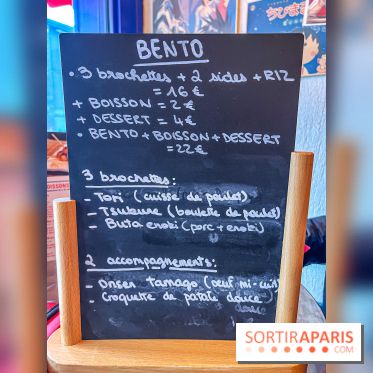 BENTO
• 3 brochettes + 2 sides + RIZ
= 16 €
+ BOISSON = 2 €
+ DESSERT = 4€
• BENTO + BOISSON + DESSERT
= 22€
3 brochettes:
- Tori (cuisse de poulet)
- Tsukune (boulette de poulet)
- Buta enoki (porc + enoki)
2 accompagnements:
- Onsen tamago (oeuf mi-cuit)
- Croquette de patate douce
SORTIRAPARIS
.COM